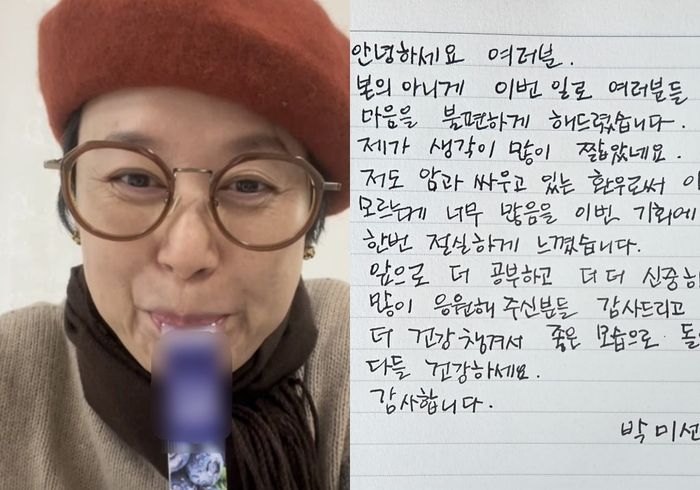 안녕하세요 여러분.
본의 아니게 이번 일로 여러분들
마음을 불편하게 해드렸습니다.
제가 생각이 많이 짧았네요.
저도 암과 싸우고 있는 환우로써 이
모르는게 너무 많음을 이번 기회에
한번 절실하게 느꼈습니다.
앞으로 더 공부하고 더 더 신중히
많이 응원해 주신분들 감사드리고
더 건강 챙겨서 좋은 모습으로
다들 건강하세요.
감사합니다.
박미선